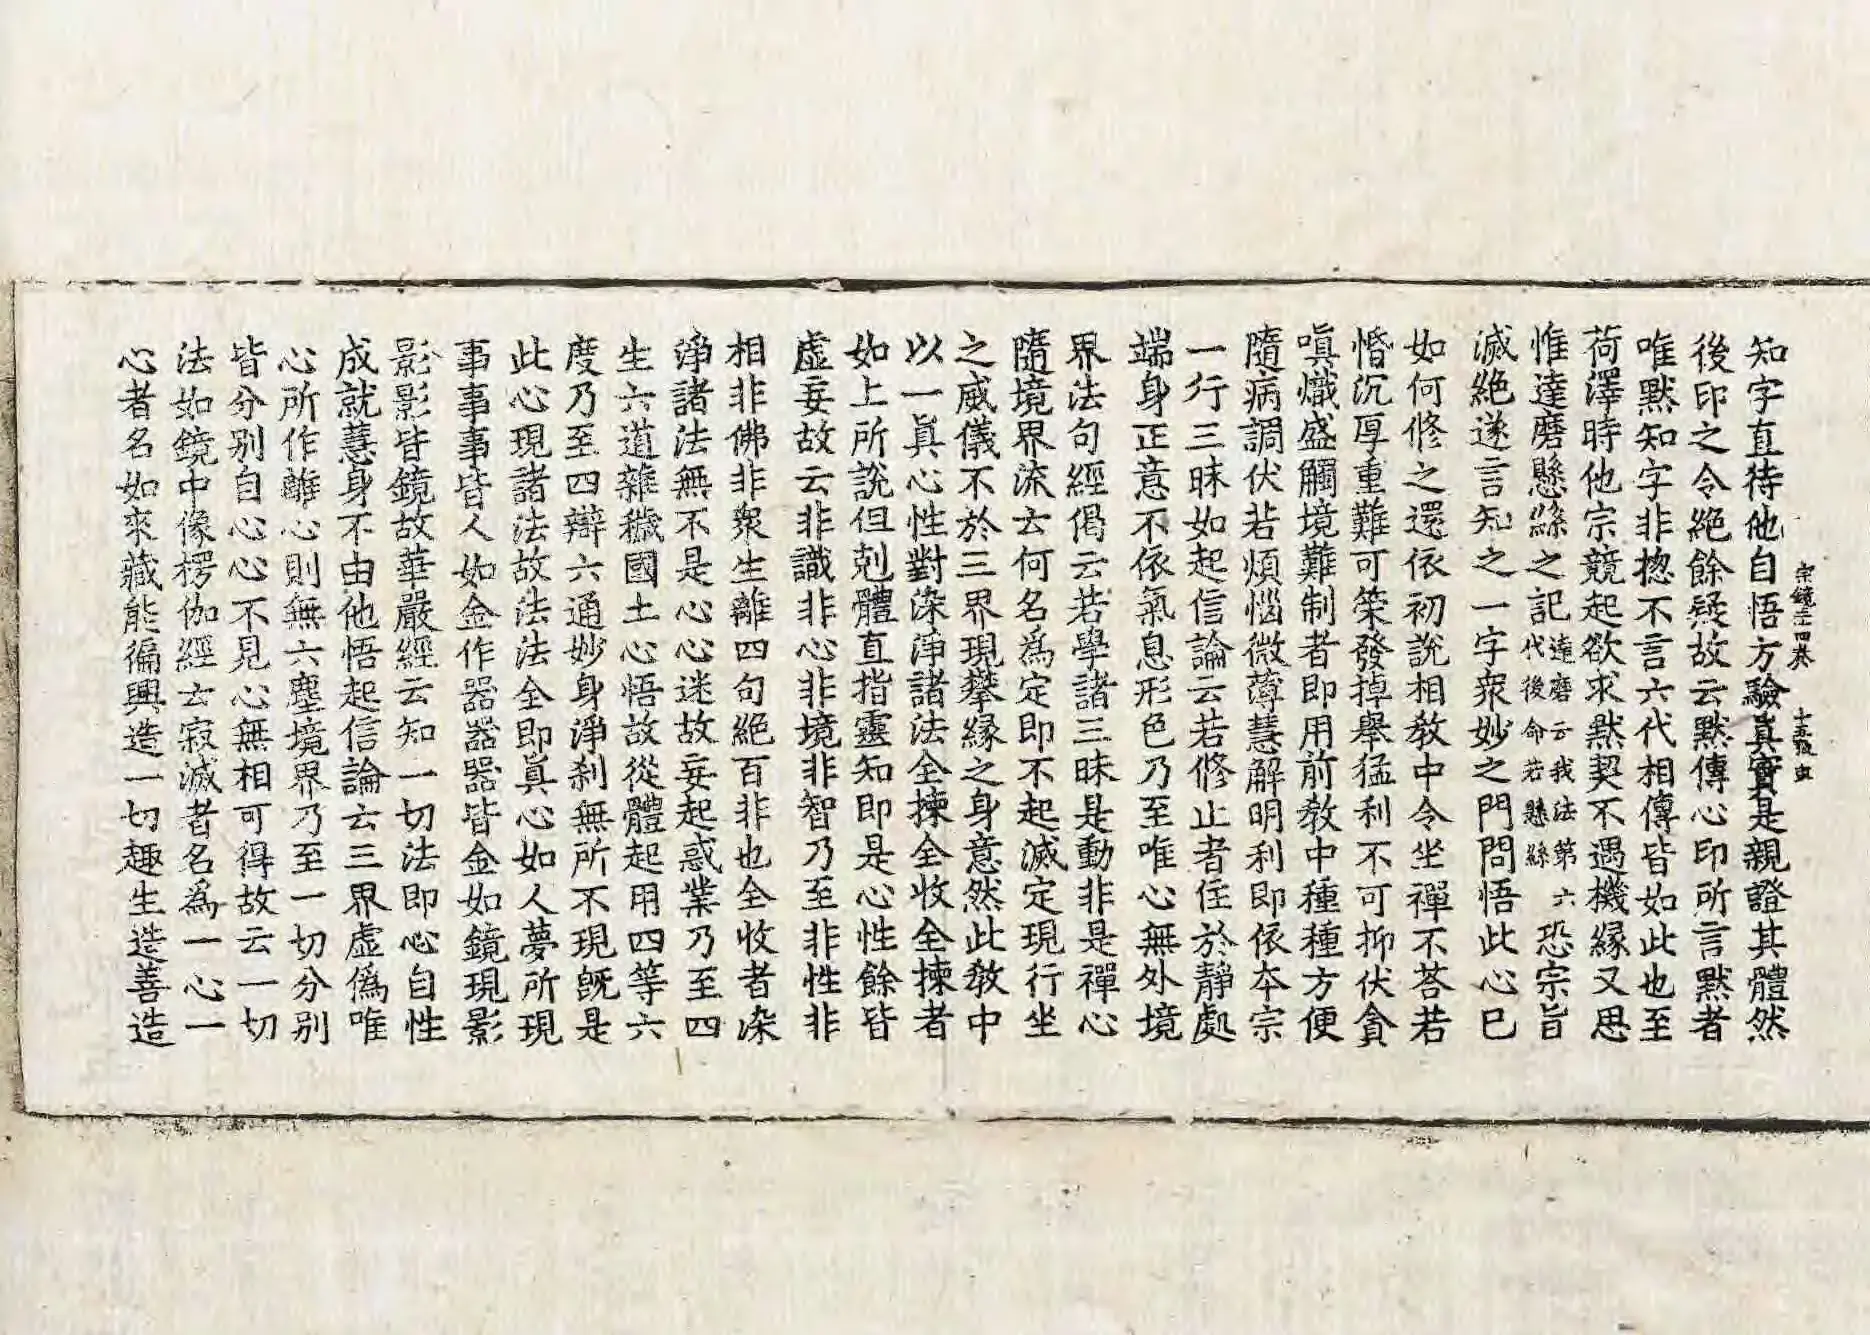 知字直待他自悟方驗真實是親證其體然
後印之令絶餘疑故云默傳心印所言默者
唯默知字非揔不言六代相傳皆如此也至
荷澤時他宗競起欲求默契不遇機縁又思
惟達磨懸絲之記達磨云我法第六代後命若懸絲恐宗旨
滅絶遂言知之一字衆妙之門問悟此心已
如何修之還依初說相教中令坐禪不荅若
惛沉厚重難可策發掉舉猛利不可抑伏貪
嗔熾盛觸境難制者即用前教中種種方便
隨病調伏若煩惱微薄慧解明利即依本宗
一行三昧如起信論云若修止者住於靜處
端身正意不依氣息形色乃至唯心無外境
界法句經偈云若學諸三昧是動非是禪心
隨境界流云何名爲定即不起滅定現行坐
之威儀不於三界現攀縁之身意然此教中
以一真心性對染淨諸法全揀全收全揀者
如上所說但剋體直指靈知即是心性餘皆
虛妄故云非識非心非境非智乃至非性非
相非佛非衆生離四句絶百非也全收者染
淨諸法無不是心心迷故妄起惑業乃至四
生六道雜穢國土心悟故從體起用四等六
度乃至四辯六通妙身淨刹無所不現旣是
此心現諸法故法法全即真心如人夢所現
事事事皆人如金作器器器皆金如鏡現影
影影皆鏡故華嚴經云知一切法即心自性
成就慧身不由他悟起信論云三界虛僞唯
心所作離心則無六塵境界乃至一切分別
皆分別自心心不見心無相可得故云一切
法如鏡中像楞伽經云寂滅者名為一心一
心者名如來藏能徧興造一切趣生造善造